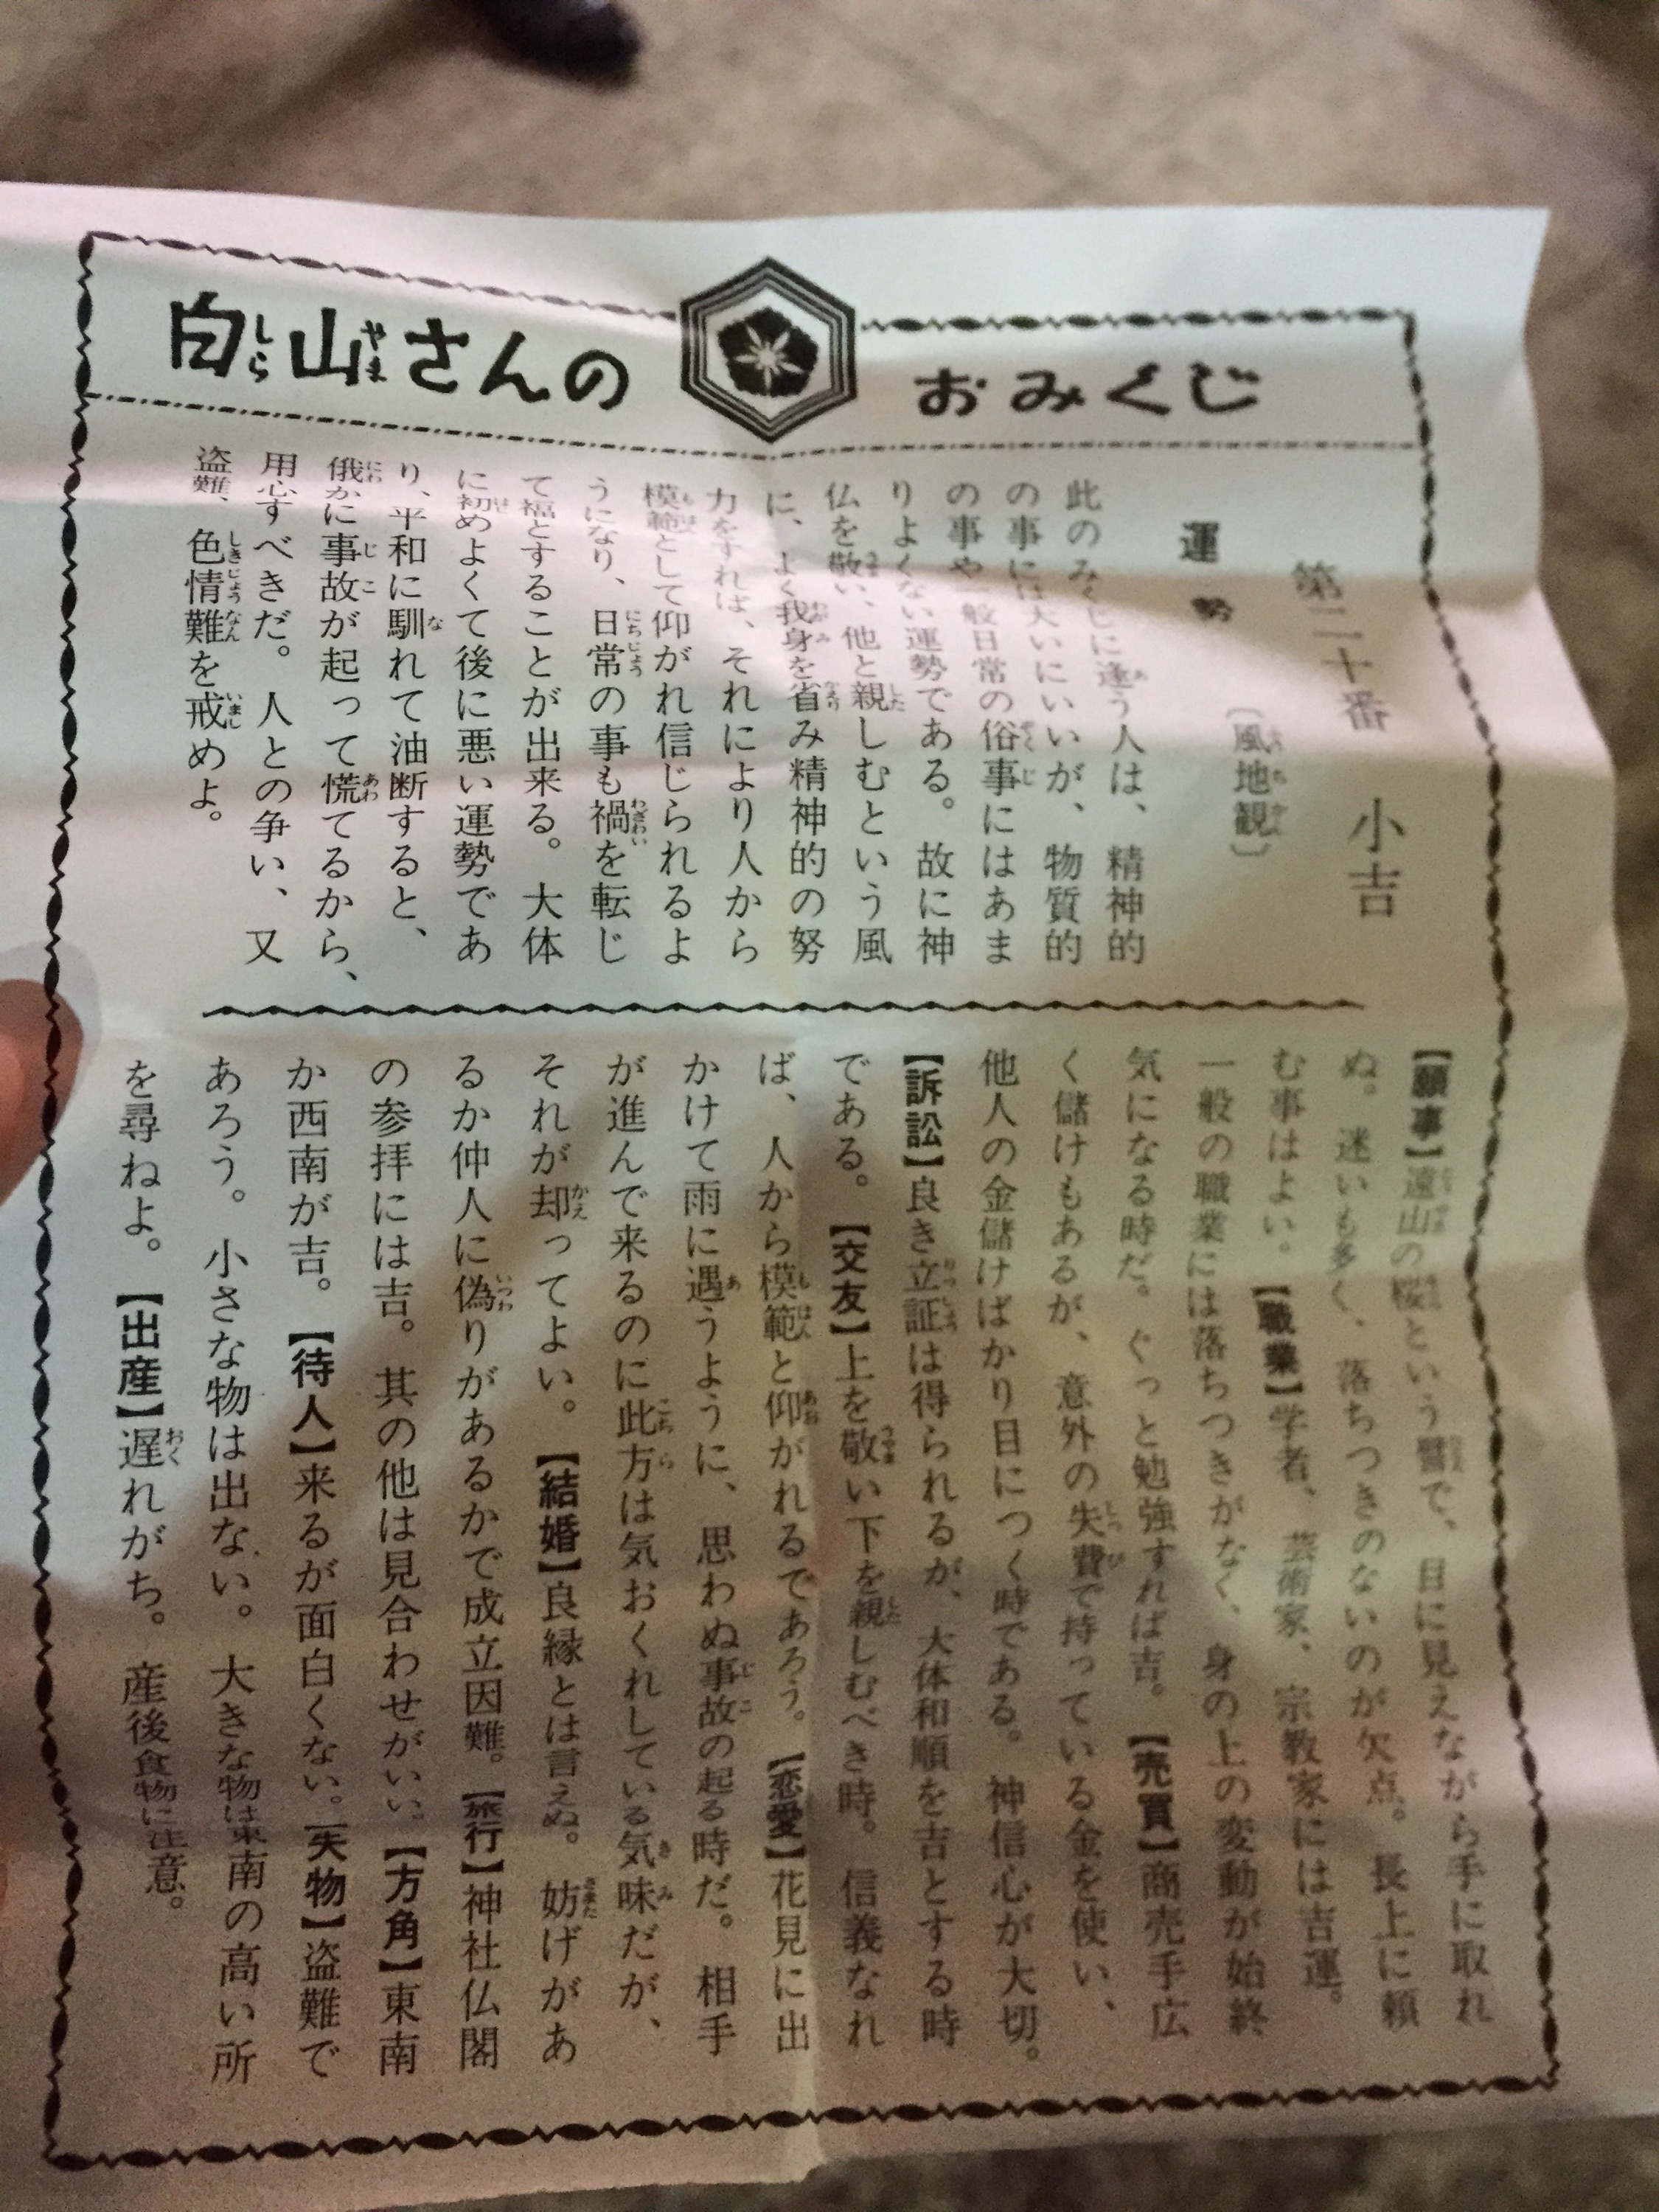 白山さんの おみくじ
第二十番 小吉
運勢 〔風地観〕
此のみくじに逢う人は、精神的
の事には大いにいいが、物質的
の事や一般日常の俗事にはあま
りよくない運勢である。故に神
仏を敬い、他と親しむという風
に、よく我身を省み精神的の努
力をすれば、それにより人から
模範として仰がれ信じられるよ
うになり、日常の事も禍を転じ
て福とすることが出来る。大体
に初めよくて後に悪い運勢であ
り、平和に馴れて油断すると、
俄かに事故が起って慌てるから、
用心すべきだ。人との争い、又
盗難、色情難を戒めよ。
【願事】遠山の桜という譬で、目に見えながら手に取れ
ぬ。迷いも多く、落ちつきのないのが欠点。長上に頼
む事はよい。【職業】学者、芸術家、宗教家には吉運。
一般の職業には落ちつきがなく、身の上の変動が始終
気になる時だ。ぐっと勉強すれば吉。【売買】商売手広
く儲けもあるが、意外の失費で持っている金を使い、
他人の金儲けばかり目につく時である。神信心が大切。
【訴訟】良き立証は得られるが、大体和順を吉とする時
である。【交友】上を敬い下を親しむべき時。信義なれ
ば、人から模範と仰がれるであろう。【恋愛】花見に出
かけて雨に遇うように、思わぬ事故の起る時だ。相手
が進んで来るのに此方は気おくれしている気味だが、
それが却ってよい。【結婚】良縁とは言えぬ。妨げがあ
るか仲人に偽りがあるかで成立因難。【旅行】神社仏閣
の参拝には吉。其の他は見合わせがいい。【方角】東南
か西南が吉。【待人】来るが面白くない。【失物】盗難で
あろう。小さな物は出ない。大きな物は東南の高い所
を尋ねよ。【出産】遅れがち。産後食物に注意。